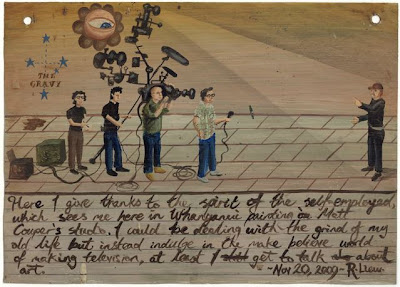 THE
GRAVY
Here I give thanks to the spirit of the self-employed,
which sees me here in Whanganui painting in Matt
Couper's studio. I could be dealing with the grind of my
old life but instead indulge in the make believe world
of making television, at least I get to talk about
art. -Nov 20, 2009- R.